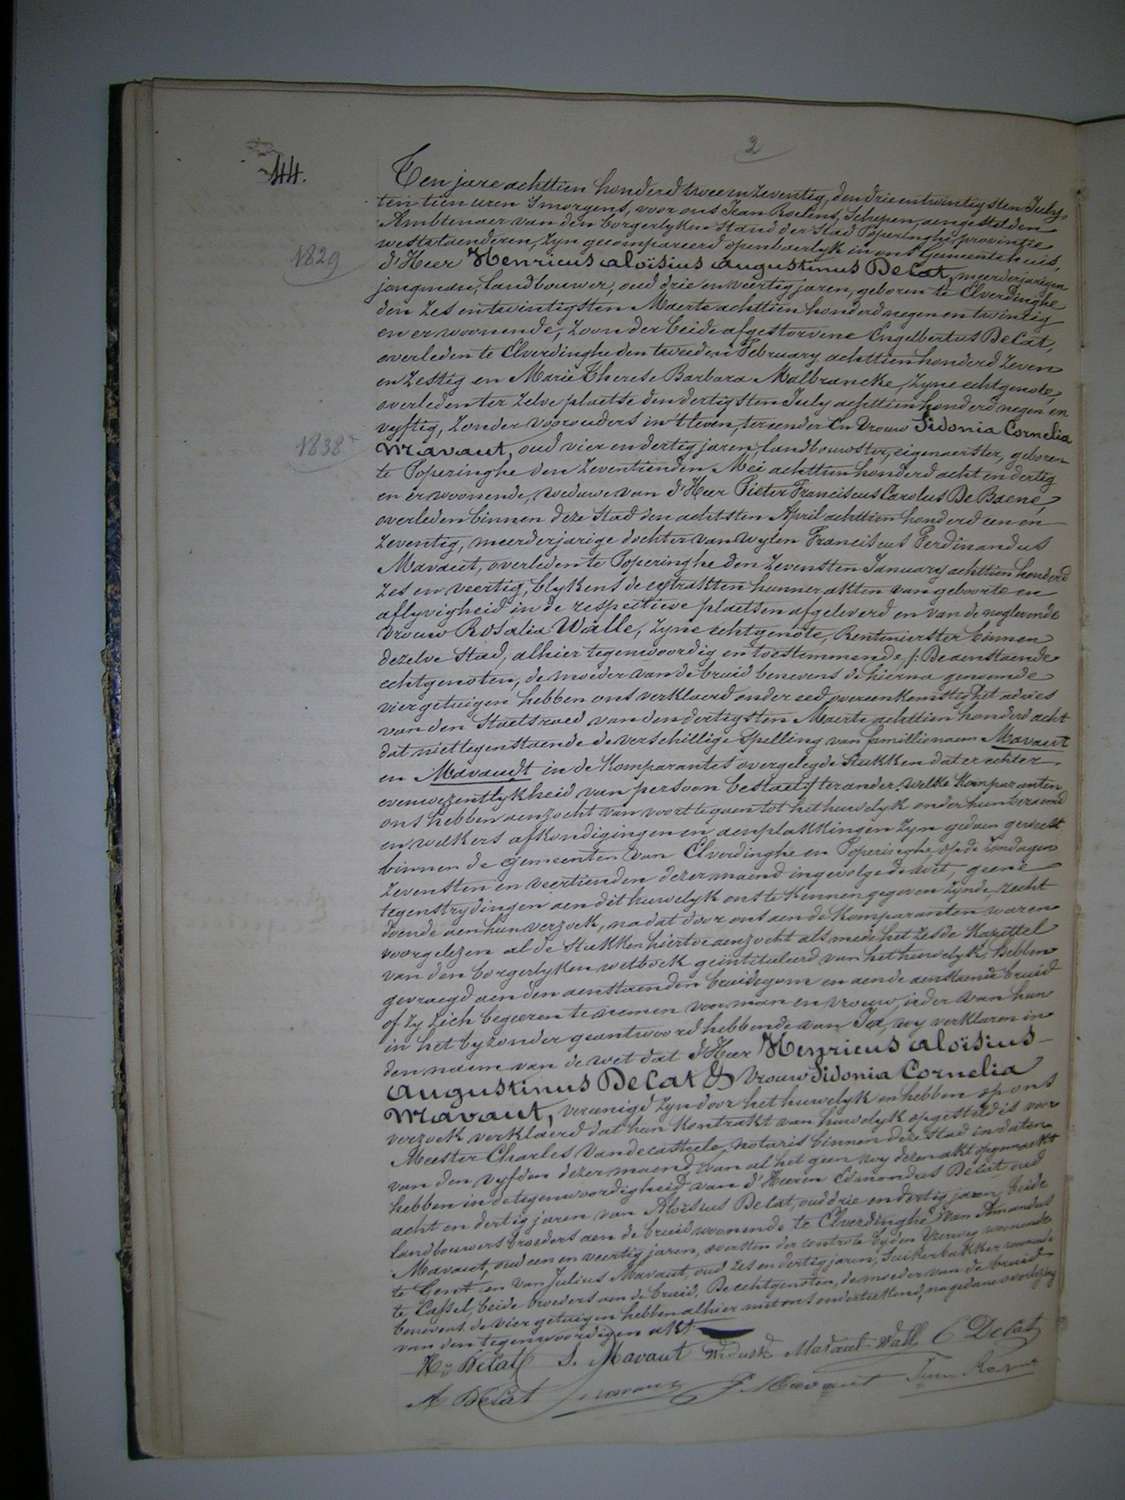 2
44.
Ten jare achttien honderd twee en zeventig, den drie en twintigsten July,
ten tien uren smorgens, voor ons Jean Roelens, Schepen, aengestelden
Ambtenaer van den borgerlyken stand der stad Poperinghe provintie
westvlaenderen, zyn gecompareerd openbaerlyk in ons Gemeentehuis,
1829
d'Heer Henricus aloïsius augustinus DeCat, meerderjarigen
jongman, landbouwer, oud drie en veertig jaren, geboren te Elverdinghe
den zes en twintigsten Maerte achttien honderd negen en twintig
en er woonende, zoon der beide afgestorvene Engelbertus DeCat,
overleden te Elverdinghe den tweeden February achttien honderd zeven
en zestig en Marie Therese Barbara Malbrancke, zyne echtgenote,
overleden ter zelve plaetse den dertigsten July achttien honderd negen en
vyftig, zonder voorouders in 't leven, ter eender En Vrouw Sidonia Cornelia
1838
Mavaut, oud vier en dertig jaren, landbouwster, eigenaerster, geboren
te Poperinghe den zeventienden Mei achttien honderd acht en dertig
en er woonende, weduwe van d'Heer Pieter Franciscus Carolus De Baene,
overleden binnen deze stad den achtsten April achttien honderd een en
zeventig, meerderjarige dochter van wylen Franciscus Ferdinandus
Mavaut, overleden te Poperinghe den zevensten January achttien honderd
zes en veertig, blykens de extrakten hunner akten van geboorte en
aflyvigheid in de respectieve plaetsen afgeleverd en van de noglevende
vrouw Rosalia Walle, zyne echtgenote, Rentenierster binnen
dezelve stad, alhier tegenwoordig en toestemmende /: De aenstaende
echtgenoten, de moeder van de bruid benevens de hierna genoemde
vier getuigen hebben ons verklaerd onder eed, overeenkomstig het advies
van den Staetsraed van den dertigsten Maerte achttien honderd acht
dat niettegenstaende de verschillige spelling van famillienaem Mavaut
en Mavaudt in de komparantes overgelegde stukken dat er echter
evenwezentlykheid van persoon bestaet ter ander. welke komparanten
ons hebben aenzocht van voort te gaen tot het huwelyk onder hun beraemd
en welkers afkondigingen en aenplakkingen zyn gedaen geweest
binnen de gemeenten van Elverdinghe en Poperinghe op de zondagen
zevensten en veertienden dezer maend ingevolge de wet, geene
tegenstrydingen aen dit huwelyk ons te kennen gegeven zynde, recht
doende aen hun verzoek, na dat door ons aen de komparanten waren
voorgelezen al de stukken hiertoe aenzocht als mede het zesde kapittel
van den borgerlyken wetboek geintituleerd van het huwelyk, hebben
gevraegd aen den aenstaenden bruidegom en aen de aenstaende bruid
of zy zich begeeren te nemen voor man en vrouw, ieder van hun
in het byzonder geantwoord hebbende van Ja, wy verklaren in
den naem van de wet dat d'Heer Henricus aloïsius
augustinus DeCat & vrouw Sidonia Cornelia
Mavaut, vereenigd zyn door het huwelyk en hebben op ons
verzoek verklaerd dat hun kontrakt van huwelyk opgesteld is voor
Meester Charles Vandecasteele, notaris binnen deze stad in daten
van den vyfden dezer maend, van al het geen wy dezen akt opgemaekt
hebben in de tegenwoordigheid van d'Heeren Edmondus DeCat, oud
acht en dertig jaren van Aloïsius DeCat, oud drie en dertig jaren, beide
landbouwers broeders aen de bruid woonende te Elverdinghe, van Amandus
Mavaut, oud een en veertig jaren, der controle by den Yzerweg woonende
te Gent en van Julius Mavaut, oud zes en dertig jaren, suikerbakker woonende
te Cassel, beide broeders aen de bruid. De echtgenoten, de moeder van de bruid
benevens de vier getuigen hebben alhier met ons onderteekend, na gedane voorlezing
van den tegenwoordigen akt.
Hy DeCat S. Mavaut Mavaut-Wall E DeCat
A DeCat J. Mavaut